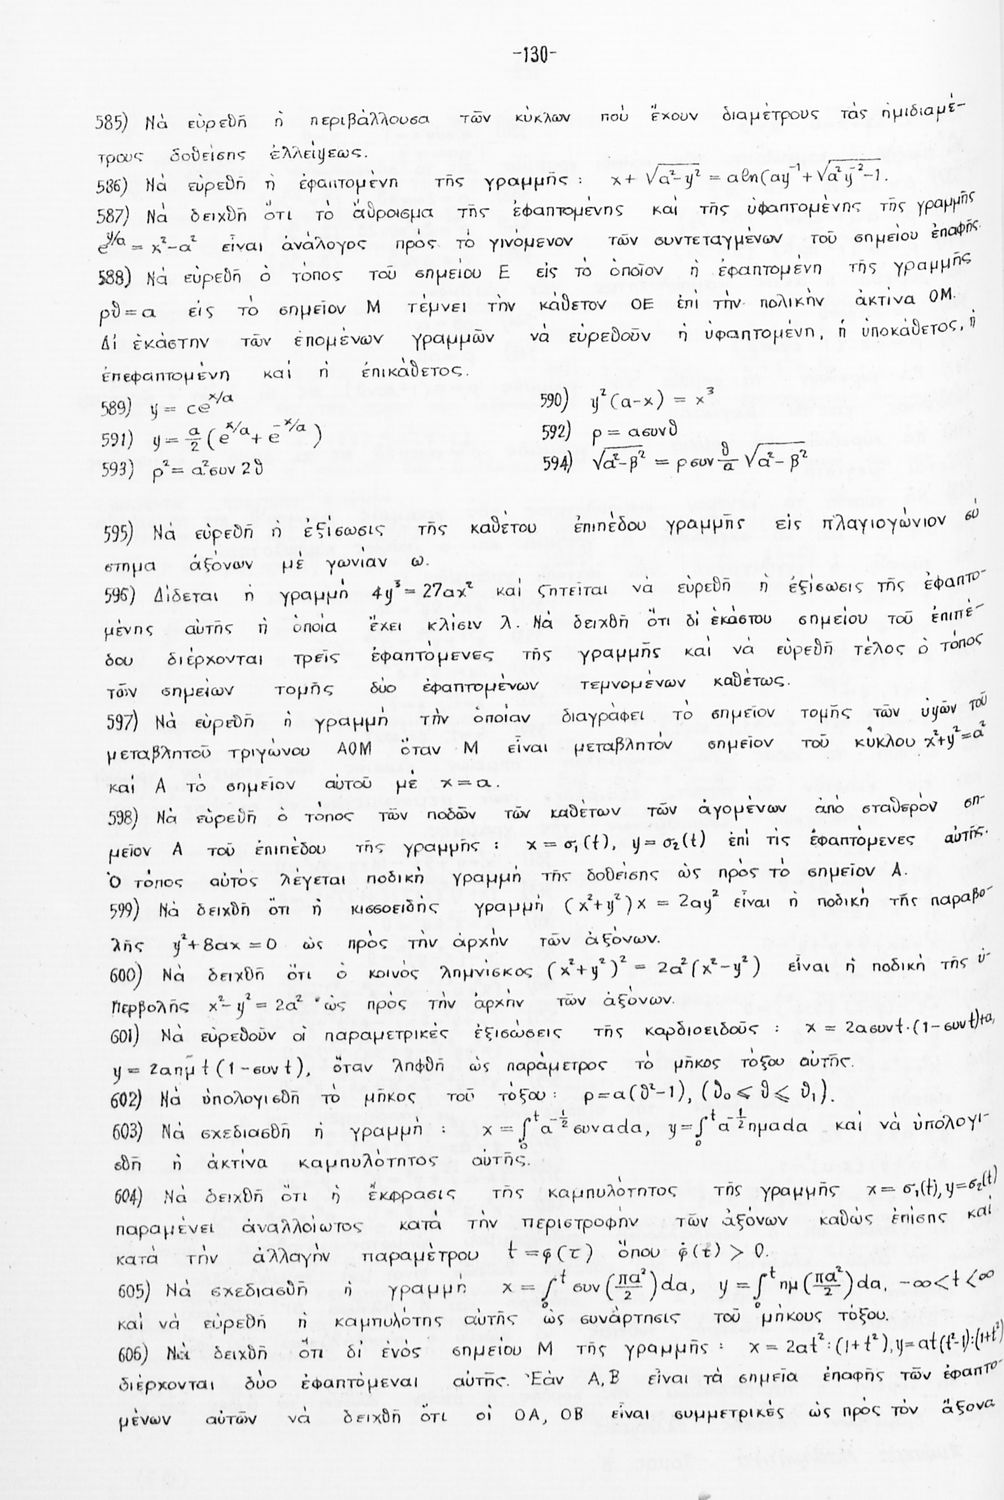 -130-
585) Νὰ εὑρεθῇ ἡ περιβάλλουσα τῶν κύκλων ποὺ ἔχουν διαμέτρους τὰς ἡμιδιαμέ-
τρους δοθείσης ἐλλείψεως.
586) Νὰ εὑρεθῇ ἡ ἐφαπτομένη τῆς γραμμῆς : x + √(a²-y²) = aln(ay⁻¹+√(a²y⁻²-1).
587) Νὰ δειχθῇ ὅτι τὸ ἄθροισμα τῆς ἐφαπτομένης καὶ τῆς ὑφαπτομένης τῆς γραμμῆς
e^(y/a) = x²-a² εἶναι ἀνάλογος πρὸς τὸ γινόμενον τῶν συντεταγμένων τοῦ σημείου ἐπαφῆς.
588) Νὰ εὑρεθῇ ὁ τόπος τοῦ σημείου Ε εἰς τὸ ὁποῖον ἡ ἐφαπτομένη τῆς γραμμῆς
ρθ=a εἰς τὸ σημεῖον Μ τέμνει τὴν κάθετον ΟΕ ἐπὶ τὴν πολικὴν ἀκτίνα ΟΜ.
Δἰ ἑκάστην τῶν ἑπομένων γραμμῶν νὰ εὑρεθοῦν ἡ ὑφαπτομένη, ἡ ὑποκάθετος, ἡ
ἐπεφαπτομένη καὶ ἡ ἐπικάθετος.
589) y = ce^(x/a) 590) y²(a-x) = x³
591) y = a/2 (e^(x/a) + e^(-x/a)) 592) ρ = aσυνθ
593) ρ² = a²συν2θ 594) √(a²-β²) = ρσυν θ/a √(a²-β²)
595) Νὰ εὑρεθῇ ἡ ἐξίσωσις τῆς καθέτου ἐπιπέδου γραμμῆς εἰς πλαγιογώνιον σύ
στημα ἀξόνων μὲ γωνίαν ω.
596) Δίδεται ἡ γραμμὴ 4y³=27ax² καὶ ζητεῖται νὰ εὑρεθῇ ἡ ἐξίσωσις τῆς ἐφαπτο-
μένης αὐτῆς ἡ ὁποία ἔχει κλίσιν λ. Νὰ δειχθῇ ὅτι δἰ ἑκάστου σημείου τοῦ ἐπιπέ-
δου διέρχονται τρεῖς ἐφαπτόμενες τῆς γραμμῆς καὶ νὰ εὑρεθῇ τέλος ὁ τόπος
τῶν σημείων τομῆς δύο ἐφαπτομένων τεμνομένων καθέτως.
597) Νὰ εὑρεθῇ ἡ γραμμὴ τὴν ὁποίαν διαγράφει τὸ σημεῖον τομῆς τῶν ὑψῶν τοῦ
μεταβλητοῦ τριγώνου ΑΟΜ ὅταν Μ εἶναι μεταβλητὸν σημεῖον τοῦ κύκλου x²+y²=a²
καὶ Α τὸ σημεῖον αὐτοῦ μὲ x=a.
598) Νὰ εὑρεθῇ ὁ τόπος τῶν ποδῶν τῶν καθέτων τῶν ἀγομένων ἀπὸ σταθερὸν ση-
μεῖον Α τοῦ ἐπιπέδου τῆς γραμμῆς : x=σ₁(t), y=σ₂(t) ἐπὶ τὶς ἐφαπτόμενες αὐτῆς.
Ὁ τόπος αὐτὸς λέγεται ποδικὴ γραμμὴ τῆς δοθείσης ὡς πρὸς τὸ σημεῖον Α.
599) Νὰ δειχθῇ ὅτι ἡ κισσοειδὴς γραμμὴ (x²+y²)x = 2ay² εἶναι ἡ ποδικὴ τῆς παραβο-
λῆς y²+8ax=0 ὡς πρὸς τὴν ἀρχὴν τῶν ἀξόνων.
600) Νὰ δειχθῇ ὅτι ὁ κοινὸς λημνίσκος (x²+y²)² = 2a²(x²-y²) εἶναι ἡ ποδικὴ τῆς ὑ-
περβολῆς x²-y²=2a² ὡς πρὸς τὴν ἀρχὴν τῶν ἀξόνων.
601) Νὰ εὑρεθοῦν οἱ παραμετρικὲς ἐξισώσεις τῆς καρδιοειδοῦς : x = 2aσυνt·(1-συνt)+a,
y = 2aημt(1-συνt), ὅταν ληφθῇ ὡς παράμετρος τὸ μῆκος τόξου αὐτῆς.
602) Νὰ ὑπολογισθῇ τὸ μῆκος τοῦ τόξου: ρ=a(θ²-1), (θ₀≤θ≤θ₁).
603) Νὰ σχεδιασθῇ ἡ γραμμὴ : x=∫₀ᵗa^(-1/2)συνada, y=∫₀ᵗa^(-1/2)ημada καὶ νὰ ὑπολογι-
σθῇ ἡ ἀκτίνα καμπυλότητος αὐτῆς.
604) Νὰ δειχθῇ ὅτι ἡ ἔκφρασις τῆς καμπυλότητος τῆς γραμμῆς x=σ₁(t), y=σ₂(t)
παραμένει ἀναλλοίωτος κατὰ τὴν περιστροφὴν τῶν ἀξόνων καθὼς ἐπίσης καὶ
κατὰ τὴν ἀλλαγὴν παραμέτρου t=φ(τ) ὅπου φ̇(τ) > 0.
605) Νὰ σχεδιασθῇ ἡ γραμμὴ x=∫₀ᵗσυν(πa²/2)da, y=∫₀ᵗημ(πa²/2)da, -∞<t<∞
καὶ νὰ εὑρεθῇ ἡ καμπυλότης αὐτῆς ὡς συνάρτησις τοῦ μήκους τόξου.
606) Νὰ δειχθῇ ὅτι δἰ ἑνὸς σημείου Μ τῆς γραμμῆς : x = 2at²:(1+t²), y=at(t²-1):(1+t²)
διέρχονται δύο ἐφαπτόμεναι αὐτῆς. Ἐὰν Α,Β εἶναι τὰ σημεῖα ἐπαφῆς τῶν ἐφαπτο-
μένων αὐτῶν νὰ δειχθῇ ὅτι οἱ ΟΑ, ΟΒ εἶναι συμμετρικὲς ὡς πρὸς τὸν ἄξονα